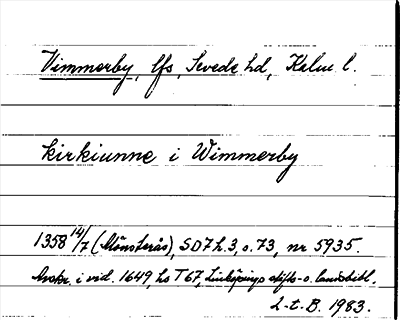 Vimmerby, lfs, Sevede hd, Kalm l.
kirkiunne i Wimmerby
1358 14/7 (Mönsterås), SD 7 h. 3, s. 73, nr 5935.
Avskr. i vid. 1649, hs T 67, Linköpings stifts- o. landsbibl.
L-t. B. 1983.